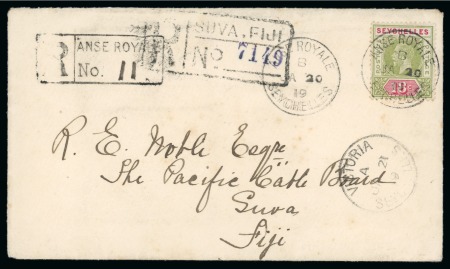 R ANSE ROYALE
No. 11
R SUVA, FIJI
No 7149
ROYALE
20
19
SEYCHELLES
SEYCHELLES
ANSE ROYALE
20
R. E. Noble Esqre
The Pacific Cable Board
Suva
Fiji
VICTORIA
A
21